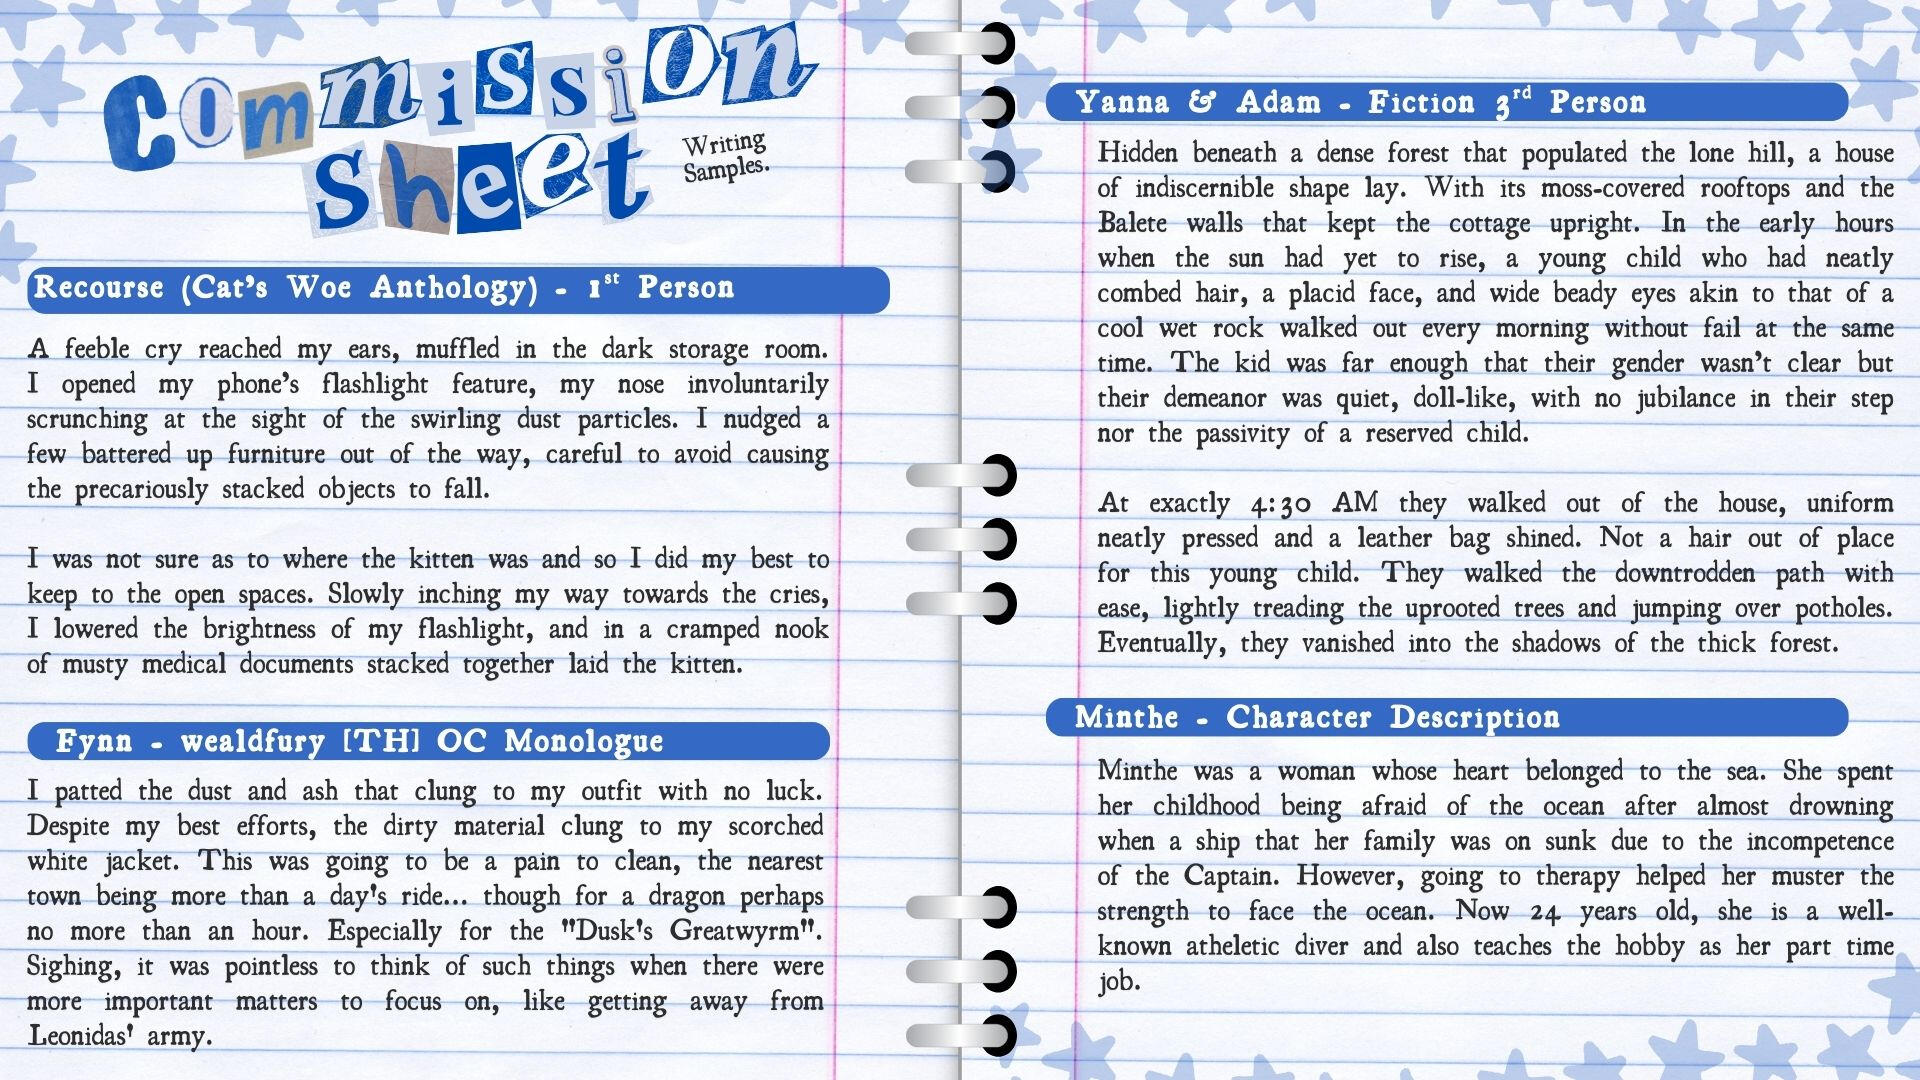 Commission
Sheet
Writing
Samples.
Recourse (Cat's Woe Anthology) - 1st Person
A feeble cry reached my ears, muffled in the dark storage room.
I opened my phone's flashlight feature, my nose involuntarily
scrunching at the sight of the swirling dust particles. I nudged a
few battered up furniture out of the way, careful to avoid causing
the precariously stacked objects to fall.
I was not sure as to where the kitten was and so I did my best to
keep to the open spaces. Slowly inching my way towards the cries,
I lowered the brightness of my flashlight, and in a cramped nook
of musty medical documents stacked together laid the kitten.
Fynn - wealdfury [TH] OC Monologue
I patted the dust and ash that clung to my outfit with no luck.
Despite my best efforts, the dirty material clung to my scorched
white jacket. This was going to be a pain to clean, the nearest
town being more than a day's ride... though for a dragon perhaps
no more than an hour. Especially for the "Dusk's Greatwyrm".
Sighing, it was pointless to think of such things when there were
more important matters to focus on, like getting away from
Leonidas' army.
Yanna & Adam - Fiction 3rd Person
Hidden beneath a dense forest that populated the lone hill, a house
of indiscernible shape lay. With its moss-covered rooftops and the
Balete walls that kept the cottage upright. In the early hours
when the sun had yet to rise, a young child who had neatly
combed hair, a placid face, and wide beady eyes akin to that of a
cool wet rock walked out every morning without fail at the same
time. The kid was far enough that their gender wasn't clear but
their demeanor was quiet, doll-like, with no jubilance in their step
nor the passivity of a reserved child.
At exactly 4:30 AM they walked out of the house, uniform
neatly pressed and a leather bag shined. Not a hair out of place
for this young child. They walked the downtrodden path with
ease, lightly treading the uprooted trees and jumping over potholes.
Eventually, they vanished into the shadows of the thick forest.
Minthe - Character Description
Minthe was a woman whose heart belonged to the sea. She spent
her childhood being afraid of the ocean after almost drowning
when a ship that her family was on sunk due to the incompetence
of the Captain. However, going to therapy helped her muster the
strength to face the ocean. Now 24 years old, she is a well-
known atheletic diver and also teaches the hobby as her part time
job.